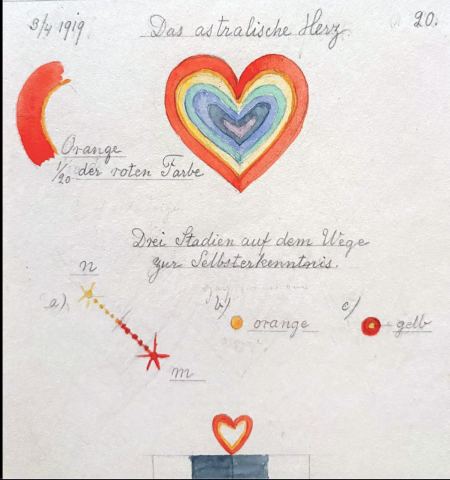 3/4 1919. Das astralische Herz. 20.
Orange
1/20 der roten Farbe
Drei Stadien auf dem Wege
zur Selbsterkenntnis.
n
a) b) orange c) gelb
m